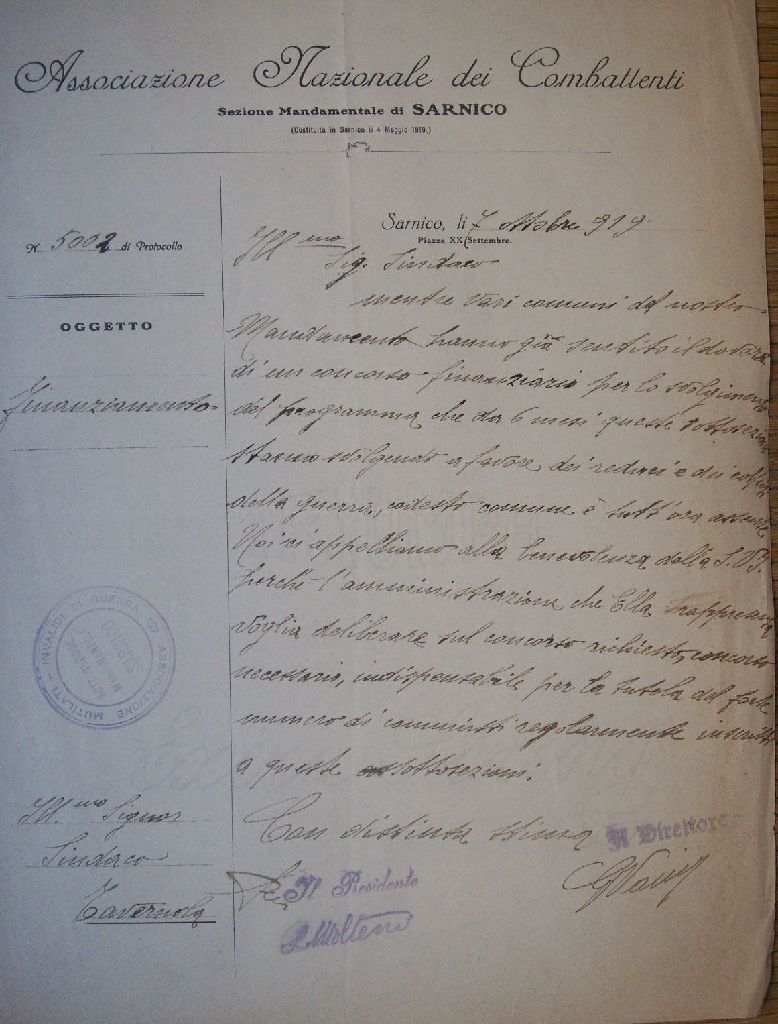 Associazione Nazionale dei Combattenti
Sezione Mandamentale di SARNICO
(Costituita in Sarnico il 4 Maggio 1919.)
Sarnico, li 7 Ottobre 919
Piazza XX Settembre.
N. 5002 di Protocollo
OGGETTO
Finanziamento
Ill.mo
Sig. Sindaco
mentre vari comuni del nostro
Mandamento hanno già sentito il dovere
di un concorso finanziario per lo svolgimento
del programma che da 6 mesi queste sottosezioni
stanno svolgendo a favore dei reduci e dei colpiti
della guerra, codesto comune è tutt'ora assente.
Noi ci appelliamo alla benevolenza della S.V.I.
perchè l'amministrazione che Ella rappresenta
voglia deliberare sul concorso richiesto, concorso
necessario, indispensabile per la tutela del forte
numero di commilitoni regolarmente inscritti
a queste sottosezioni.
Con distinta stima
ASSOCIAZIONE MUTILATI - INVALIDI DI GUERRA
SOTTOSEZIONE
MANDAMENTALE
SARNICO
Ill.mo Signor
Sindaco
Tavernola
Il Presidente
Il Direttore